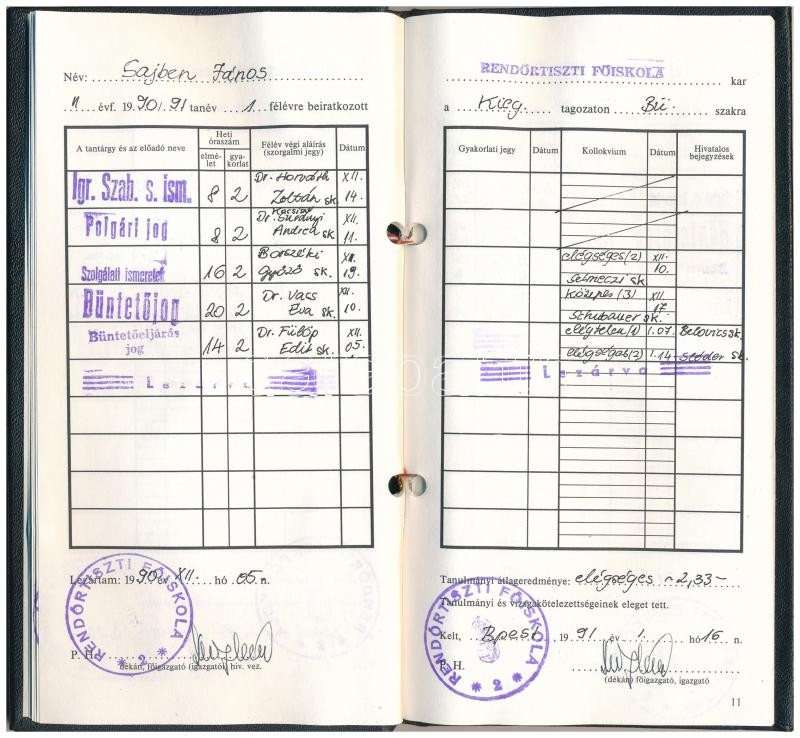 Név: Sajben János
II évf. 1990/91 tanév 1. félévre beiratkozott
A tantárgy és az előadó neve
Heti óraszám
elmélet
gyakorlat
Félév végi aláírás (szorgalmi jegy)
Dátum
Igr. Szab. s. ism. 8 2 Dr. Horváth Zoltán sk. XII. 14.
Polgári jog 8 2 Dr. Surányi Andrea sk XII. 11.
Szolgálati ismeretek 16 2 Borszéki Győző sk. XII. 19.
Büntetőjog 20 2 Dr. Vacs Éva sk. XII. 10.
Büntetőeljárás jog 14 2 Dr. Fülöp Edit sk. XII. 05.
Lezárva
Lezártam: 1990 év XII. hó 05. n.
RENDŐRTISZTI FŐISKOLA
* 2 *
P. H.
(dékán, főigazgató (igazgató) hiv. vez.
RENDŐRTISZTI FŐISKOLA kar
a Kieg. tagozaton Bü. szakra
Gyakorlati jegy
Dátum
Kollokvium
Dátum
Hivatalos bejegyzések
elégséges (2) XII. 10.
Selmeczi sk
közepes (3) XII. 17
Schubauer sk.
elégtelen (1) 1.07. Belovics sk.
elégséges (2) 1.14. sk.
Lezárva
Tanulmányi átlageredménye: elégséges ~ 2,33 ~
Tanulmányi és vizsgakötelezettségeinek eleget tett.
Kelt, Bpest 1991 év 1. hó 16 n.
RENDŐRTISZTI FŐISKOLA
* 2 *
P. H.
(dékán) főigazgató, igazgató
11